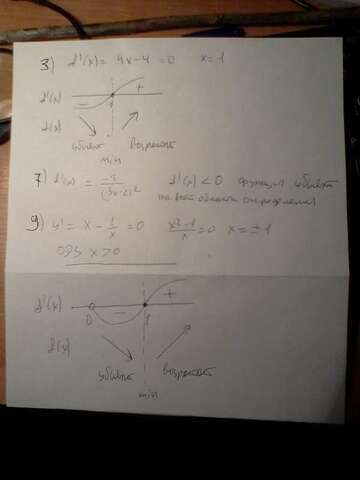 3) f'(x) = 4x-4 = 0    x = 1
f'(x)    -    +
f(x)
убывает    возрастает
min
7) f'(x) = -3/(3x-2)²    f'(x) < 0    функция убывает
на всей области определения
9) y' = x - 1/x = 0    x²-1/x = 0    x = ±1
ОДЗ x>0
f'(x)    -    +
0    1
f(x)
убывает    возрастает
min